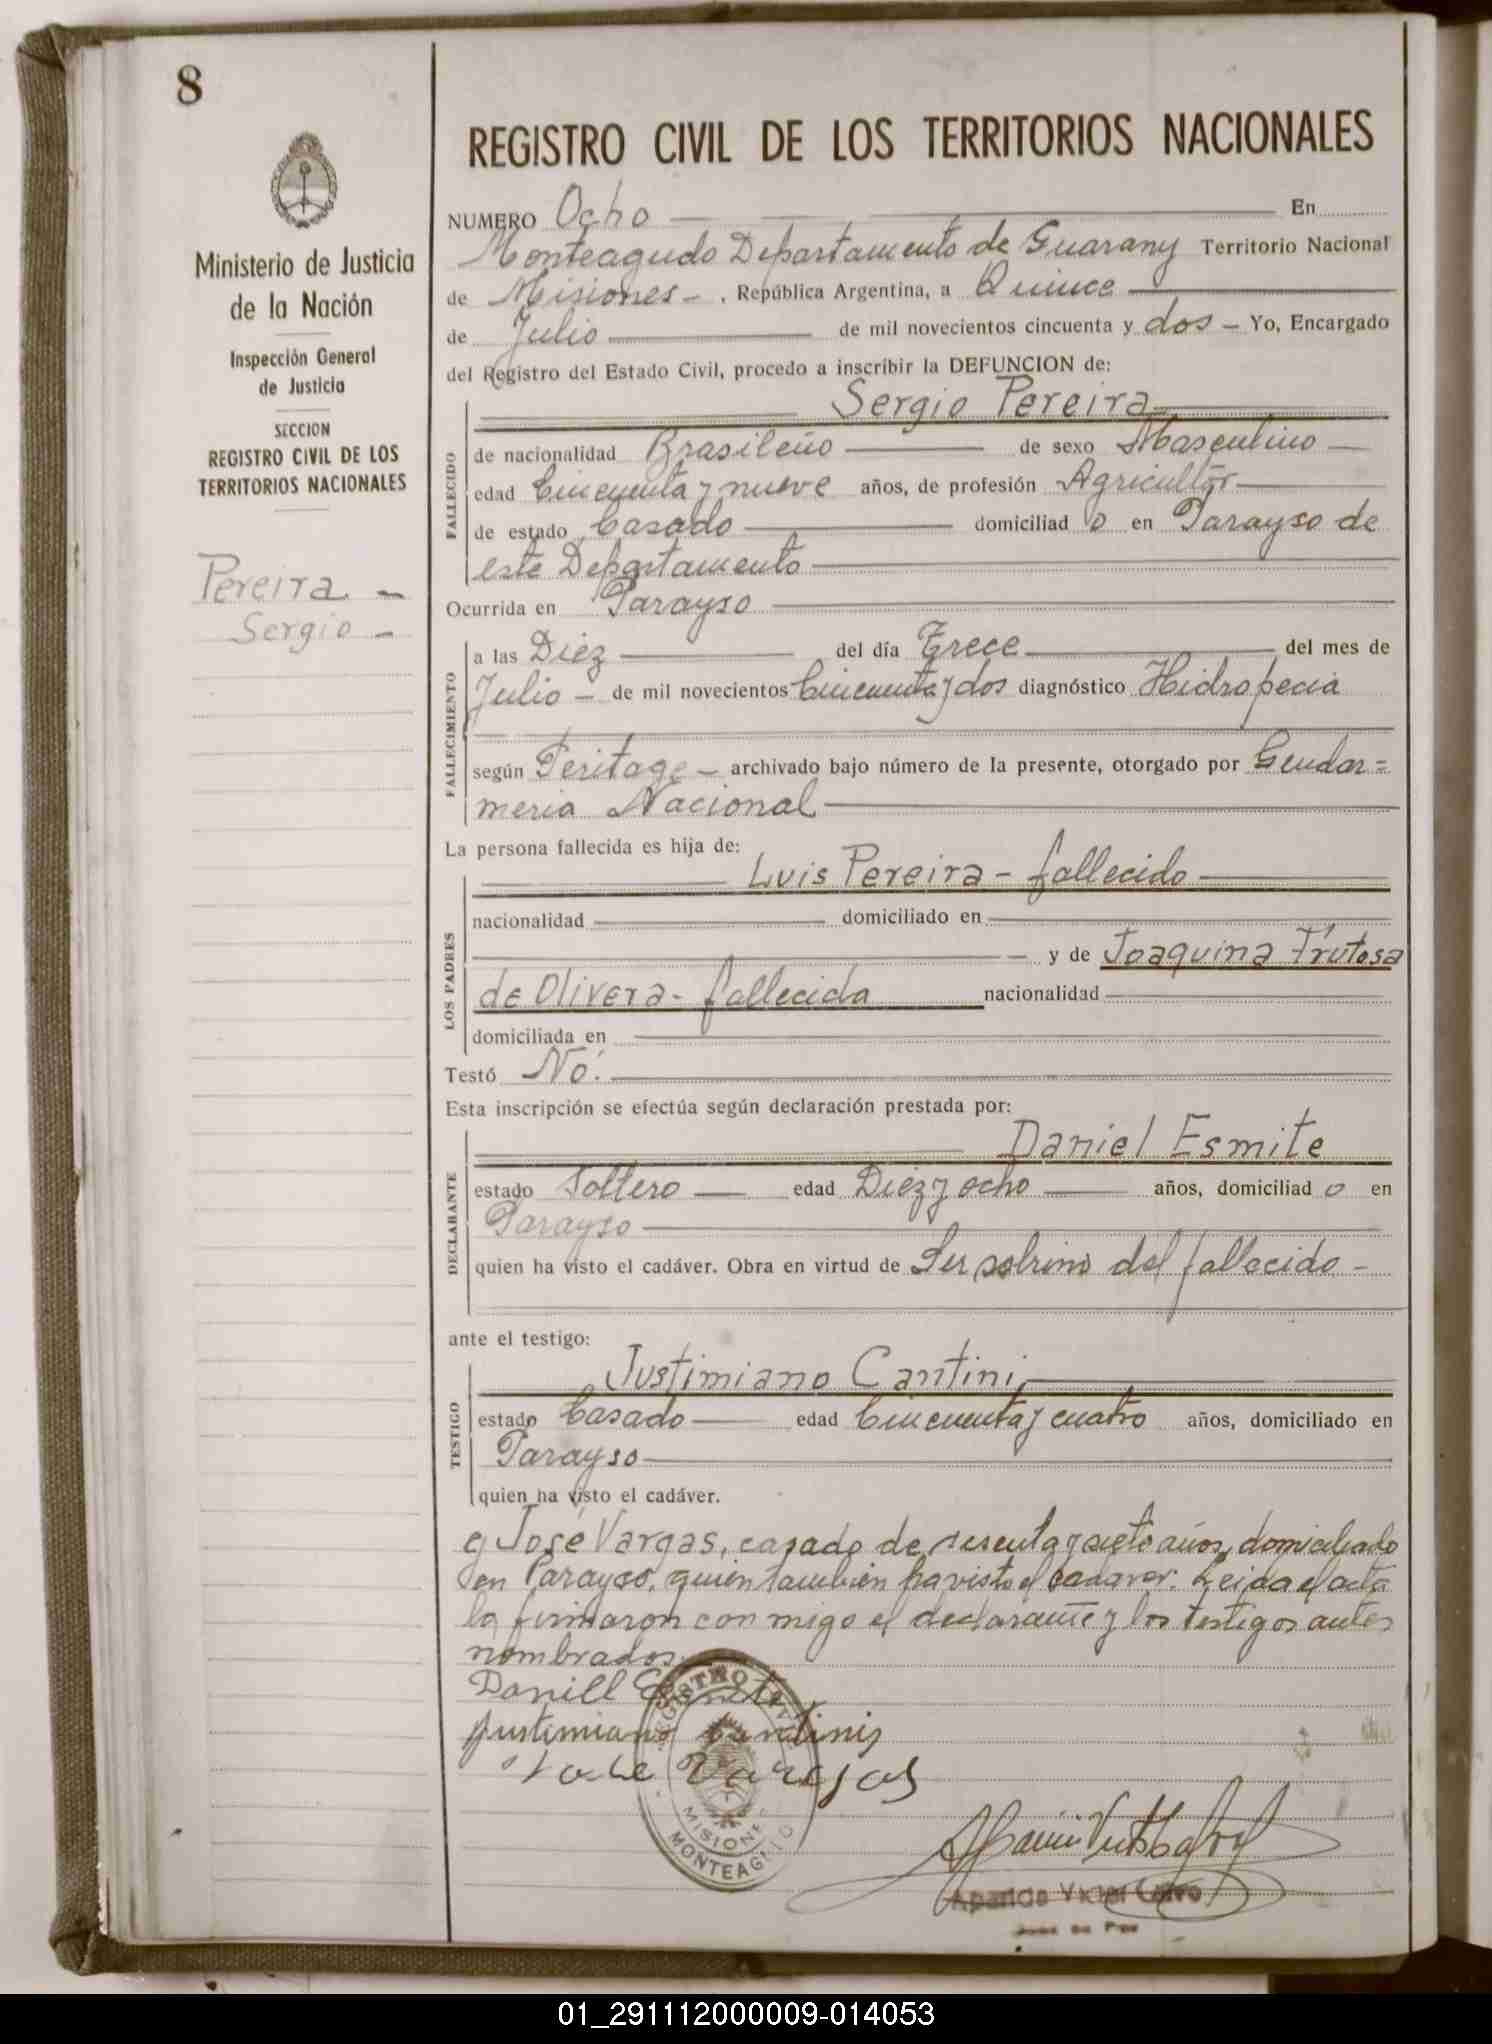 8
Ministerio de Justicia
de la Nación
Inspección General
de Justicia
SECCION
REGISTRO CIVIL DE LOS
TERRITORIOS NACIONALES
Pereira -
Sergio -
REGISTRO CIVIL DE LOS TERRITORIOS NACIONALES
NUMERO Ocho En
Monteagudo Departamento de Guarany Territorio Nacional
de Misiones - , República Argentina, a Quince
de Julio de mil novecientos cincuenta y dos - Yo, Encargado
del Registro del Estado Civil, procedo a inscribir la DEFUNCION de:
Sergio Pereira
FALLECIDO
de nacionalidad Brasileño de sexo Masculino
edad Cincuenta y nueve años, de profesión Agricultor
de estado Casado domiciliad o en Parayso de
este Departamento
Ocurrida en Parayso
FALLECIMIENTO
a las Diez del día Trece del mes de
Julio - de mil novecientos Cincuenta y dos diagnóstico Hidropecia
según Peritage - archivado bajo número de la presente, otorgado por Gendar=
meria Nacional
La persona fallecida es hija de:
LOS PADRES
Luis Pereira - fallecido
nacionalidad domiciliado en
y de Joaquina Frutosa
de Olivera - fallecida nacionalidad
domiciliada en
Testó No.
Esta inscripción se efectúa según declaración prestada por:
DECLARANTE
Daniel Esmite
estado Soltero edad Diez y ocho años, domiciliad o en
Parayso
quien ha visto el cadáver. Obra en virtud de Ser sobrino del fallecido -
ante el testigo:
TESTIGO
Justimiano Cantini
estado Casado edad Cincuenta y cuatro años, domiciliado en
Parayso
quien ha visto el cadáver.
y José Vargas, casado de sesenta y siete años, domiciliado
en Parayso, quien tambien ha visto el cadaver. Leida el acta
la firmaron con migo el declarante y los testigos antes
nombrados.
Daniell Esmite
Justimiano Cantinis
Jose Vargas
REGISTRO CIVIL
MISIONES
MONTEAGUDO
Aparicio Victor Calvo
Juez de Paz
01_291112000009-014053